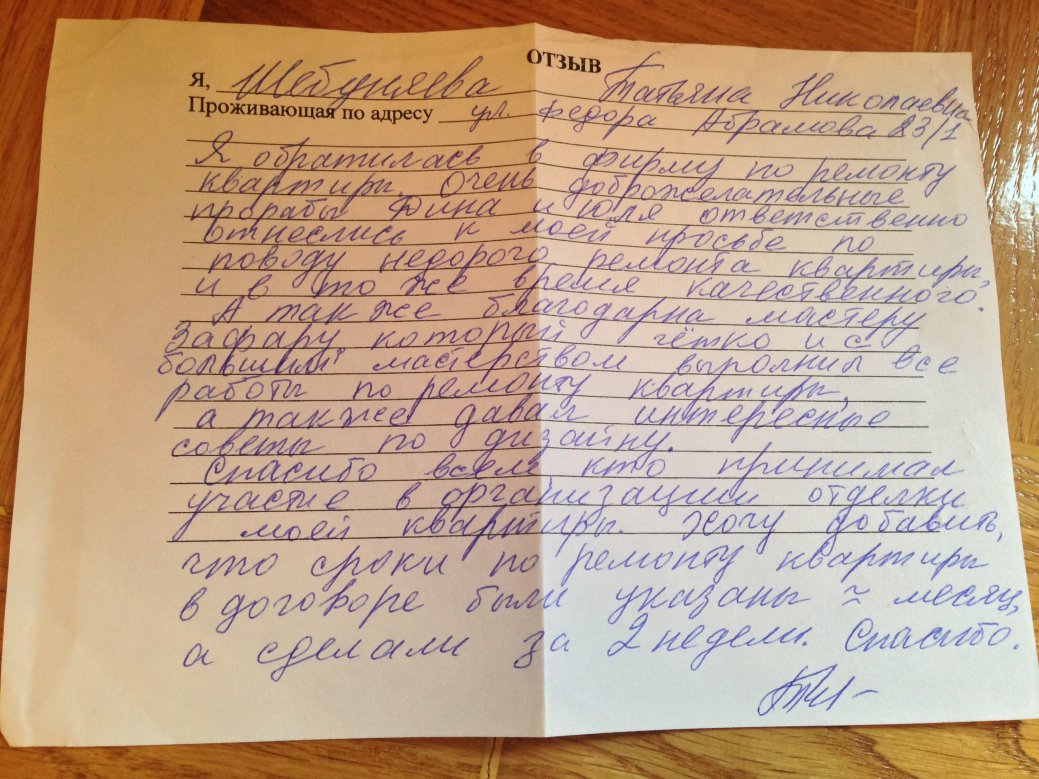 ОТЗЫВ
Я, Шебуняева Татьяна Николаевна
Проживающая по адресу ул. Федора Абрамова 23/1
Я обратилась в фирму по ремонту
квартиры. Очень доброжелательные
прорабы Дина и Юля ответственно
отнеслись к моей просьбе по
поводу недорого ремонта квартиры,
и в то же время качественного.
А также благодарна мастеру
Зафару который чётко и с
большим мастерством выполнил все
работы по ремонту квартиры,
а также давал интересные
советы по дизайну.
Спасибо всем кто принимал
участие в организации отделки
моей квартиры. Хочу добавить,
что сроки по ремонту квартиры
в договоре были указаны ≈ месяц,
а сделали за 2 недели. Спасибо.